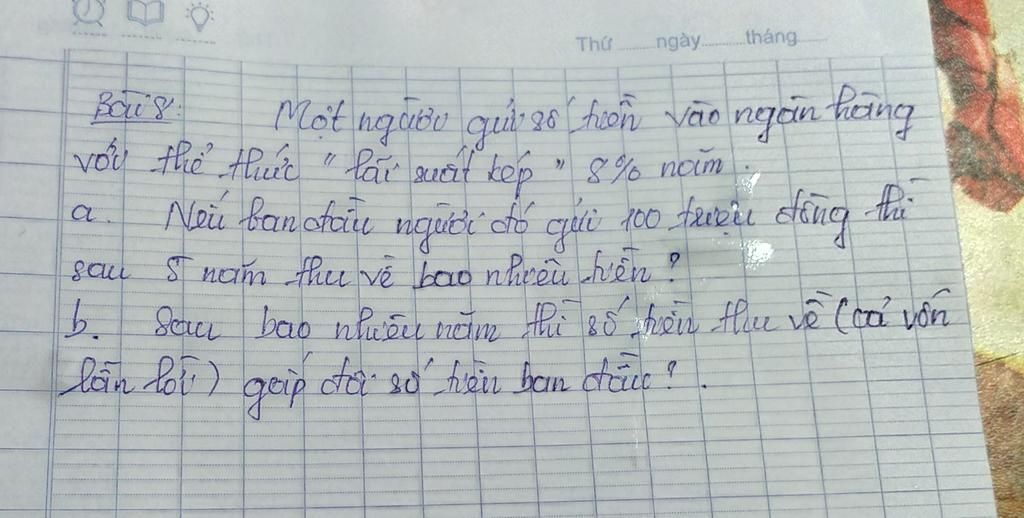 Thứ ngày tháng
Bài 8: Một người gửi số tiền vào ngân hàng
với thể thức " lãi suất kép " 8% năm.
a. Nếu ban đầu người đó gửi 100 triệu đồng thì
sau 5 năm thu về bao nhiêu tiền ?
b. Sau bao nhiêu năm thì số tiền thu về (cả vốn
lẫn lời) gấp đôi số tiền ban đầu ? .